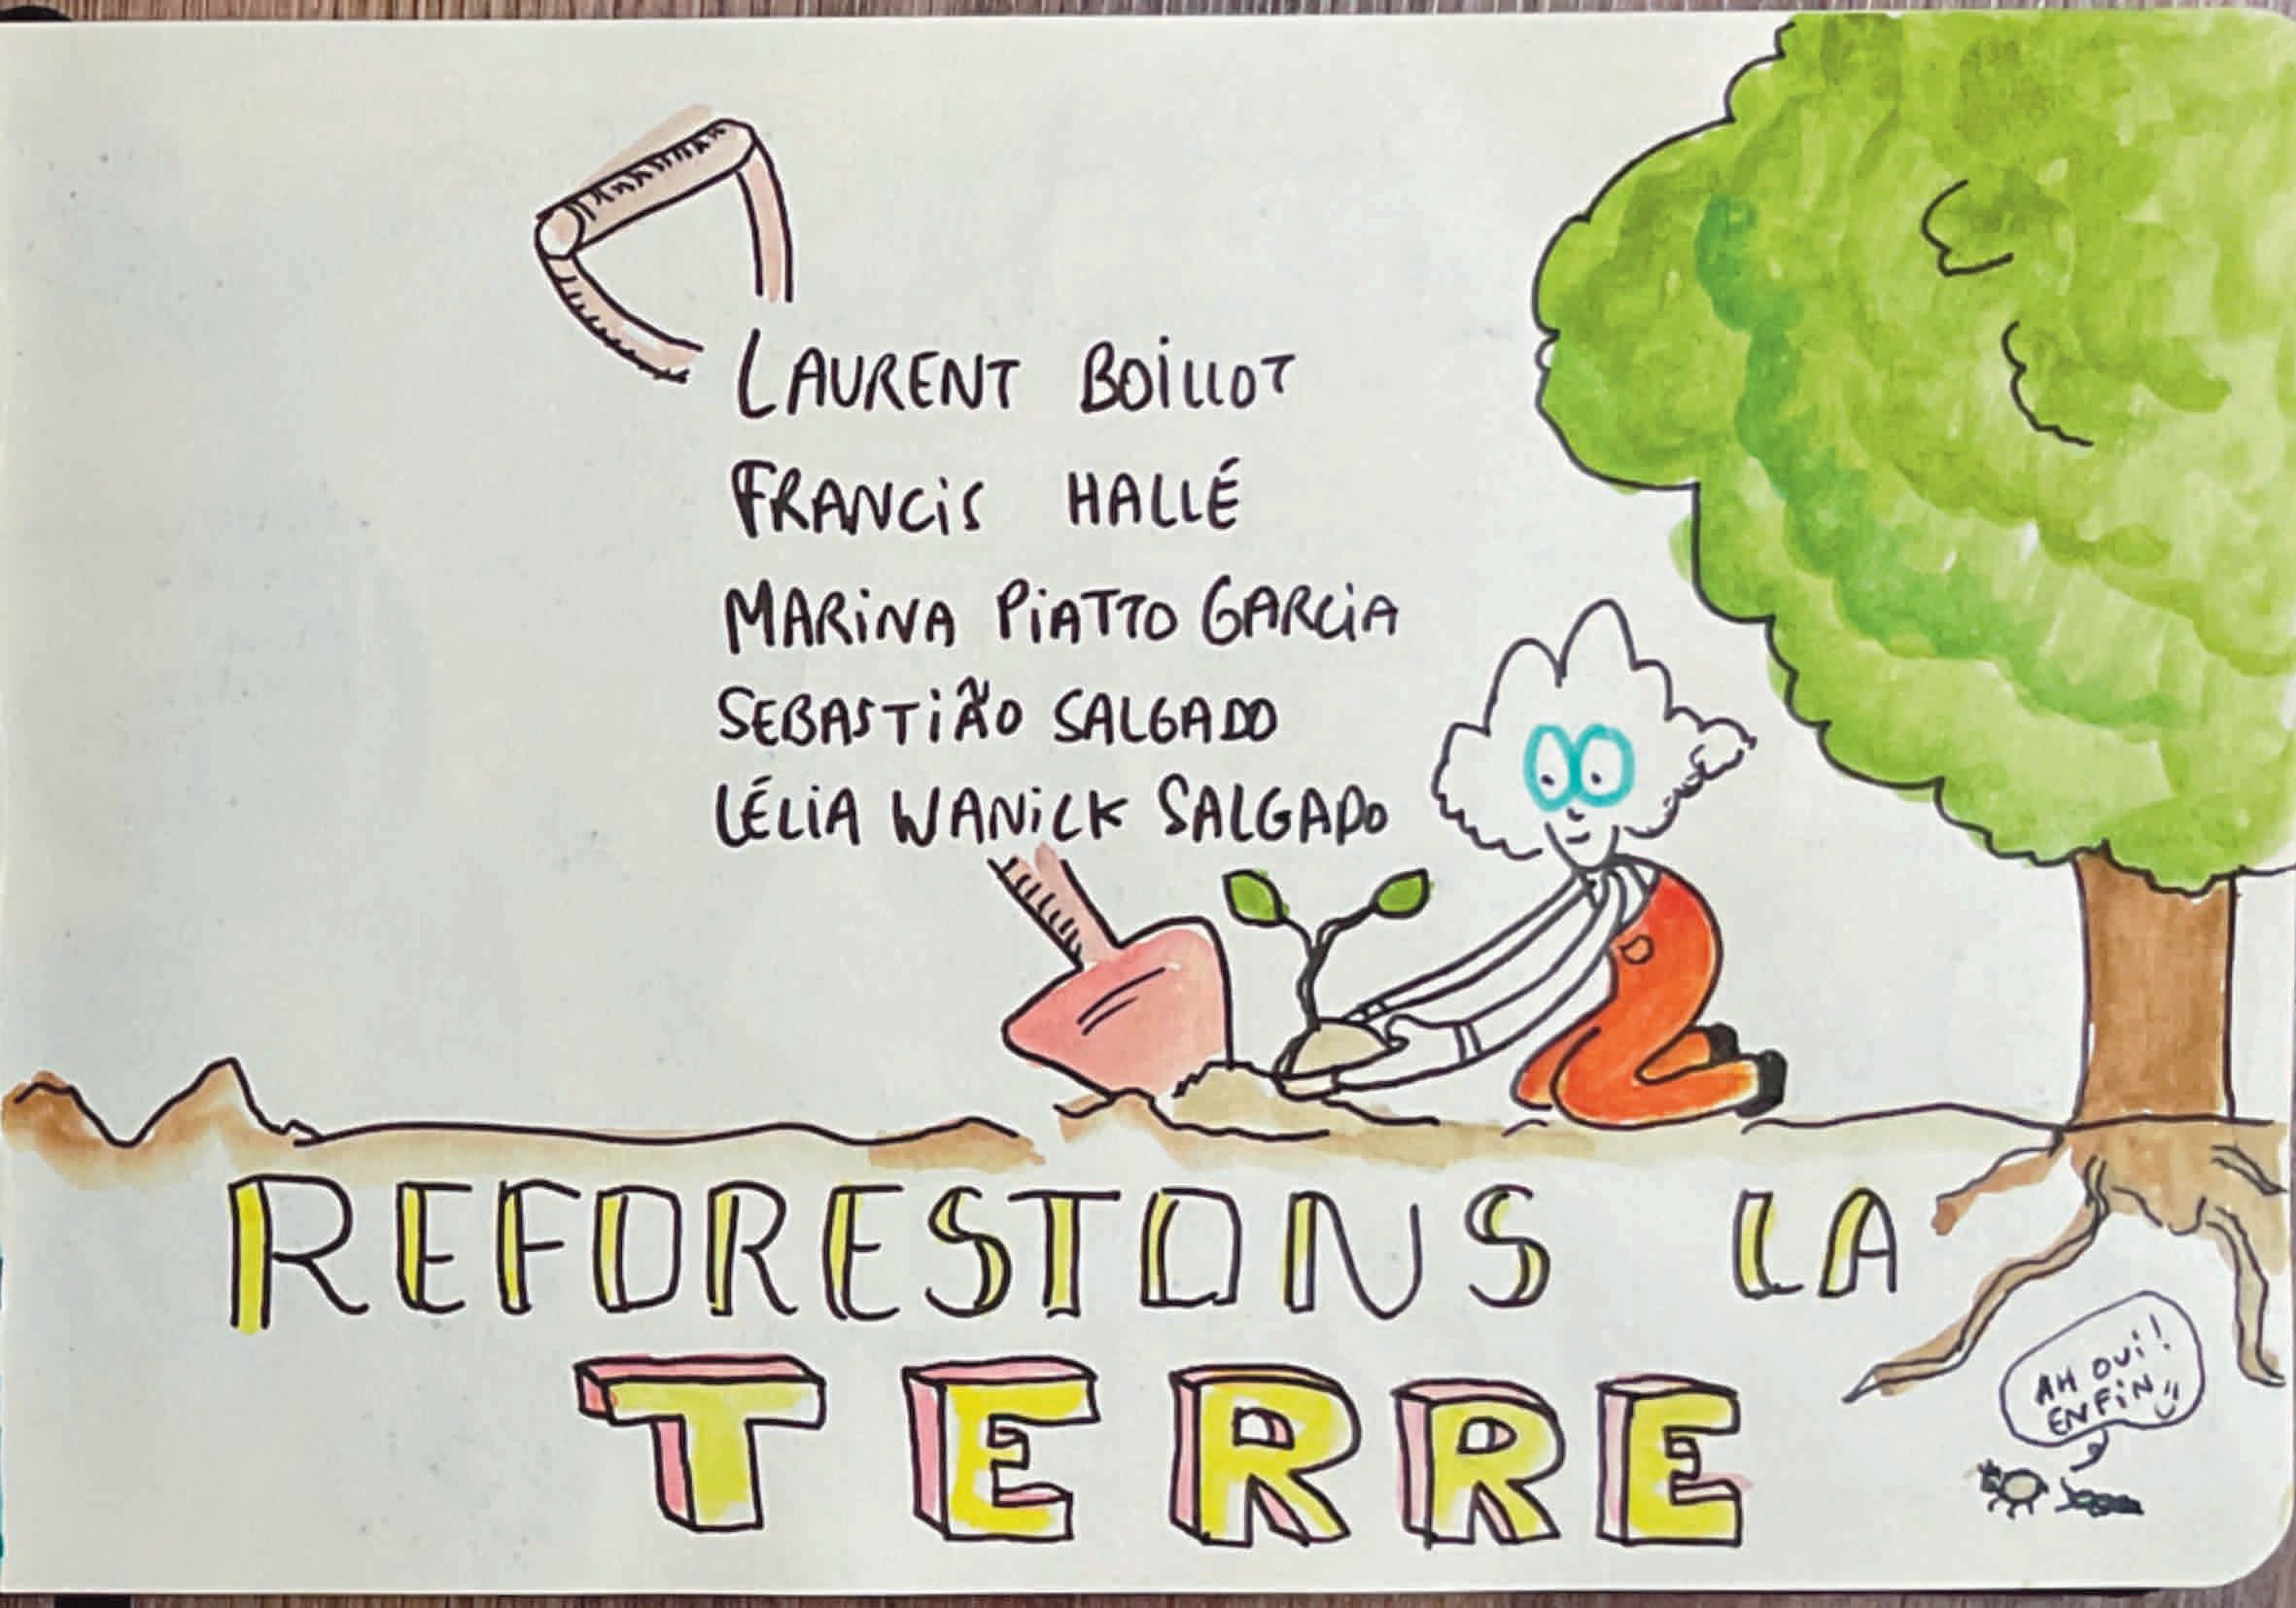 LAURENT BOILLOT
FRANCIS HALLÉ
MARINA PIATTO GARCIA
SEBASTIÃO SALGADO
LÉLIA WANICK SALGADO
REFORESTONS LA
TERRE
AH OUI!
ENFIN